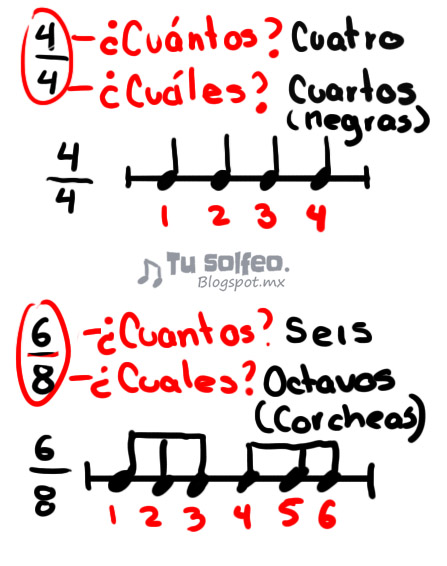 4 - ¿Cuántos? Cuatro
4 - ¿Cuáles? Cuartos
(negras)
4
4
1 2 3 4
Tu solfeo.
Blogspot.mx
6 - ¿Cuantos? Seis
8 - ¿Cuales? Octavos
(Corcheas)
6
8
1 2 3 4 5 6